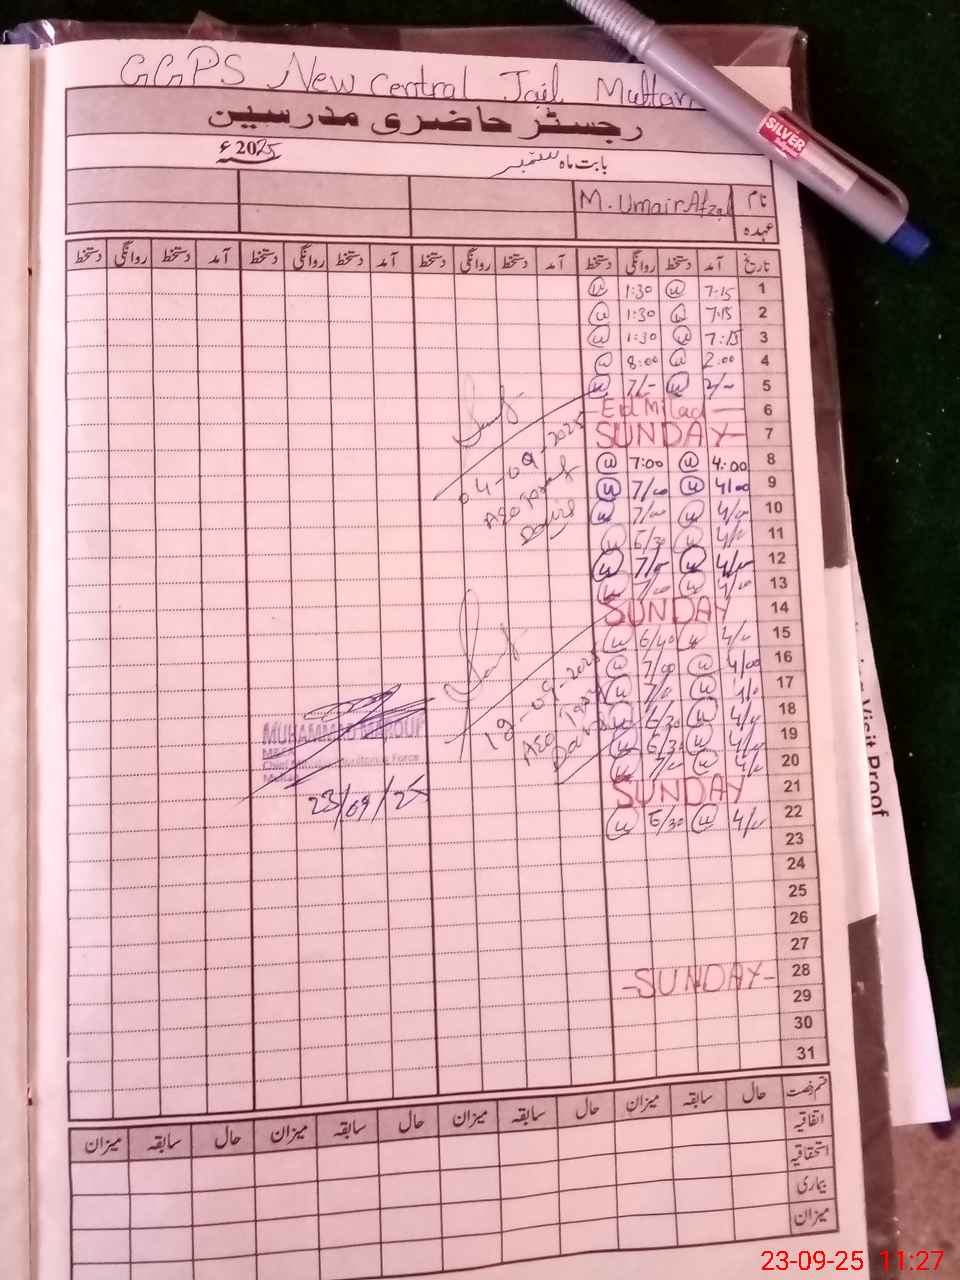 GGPS New Central Jail Multan
رجسٹر حاضری مدرسین
بابت ماہ ستمبر 2025ء
نام M. Umair Afzal
عہدہ
تاریخ آمد دستخط روانگی دستخط آمد دستخط روانگی دستخط آمد دستخط روانگی دستخط
1 7:15 u 1:30 u
2 7:15 u 1:30 u
3 7:15 u 1:30 u
4 2:00 u 8:00 u
5 2/- u 7/- u
6 Eid Milad
7 SUNDAY
8 4:00 u 7:00 u
9 4/00 u 7/00 u
10 4/00 u 7/00 u
11 u 6/30 u
12 u u
13 4/00 u 7/00 u
14 SUNDAY
15 u 6/40 u
16 4/00 u 7/00 u
17 u u
18 u 6/30 u
19 u 6/30 u
20 u u
21 SUNDAY
22 u 6/30 u
23
24
25
26
27
28 -SUNDAY-
29
30
31
04-09-2025
AEO
19-09-2025
AEO
MUHAMMAD MAROUF
Force
23/09/25
قسم رخصت حال سابقہ میزان حال سابقہ میزان حال سابقہ میزان
اتفاقیہ
استحقاقیہ
بیماری
میزان
SILVER
Visit Proof
23-09-25 11:27